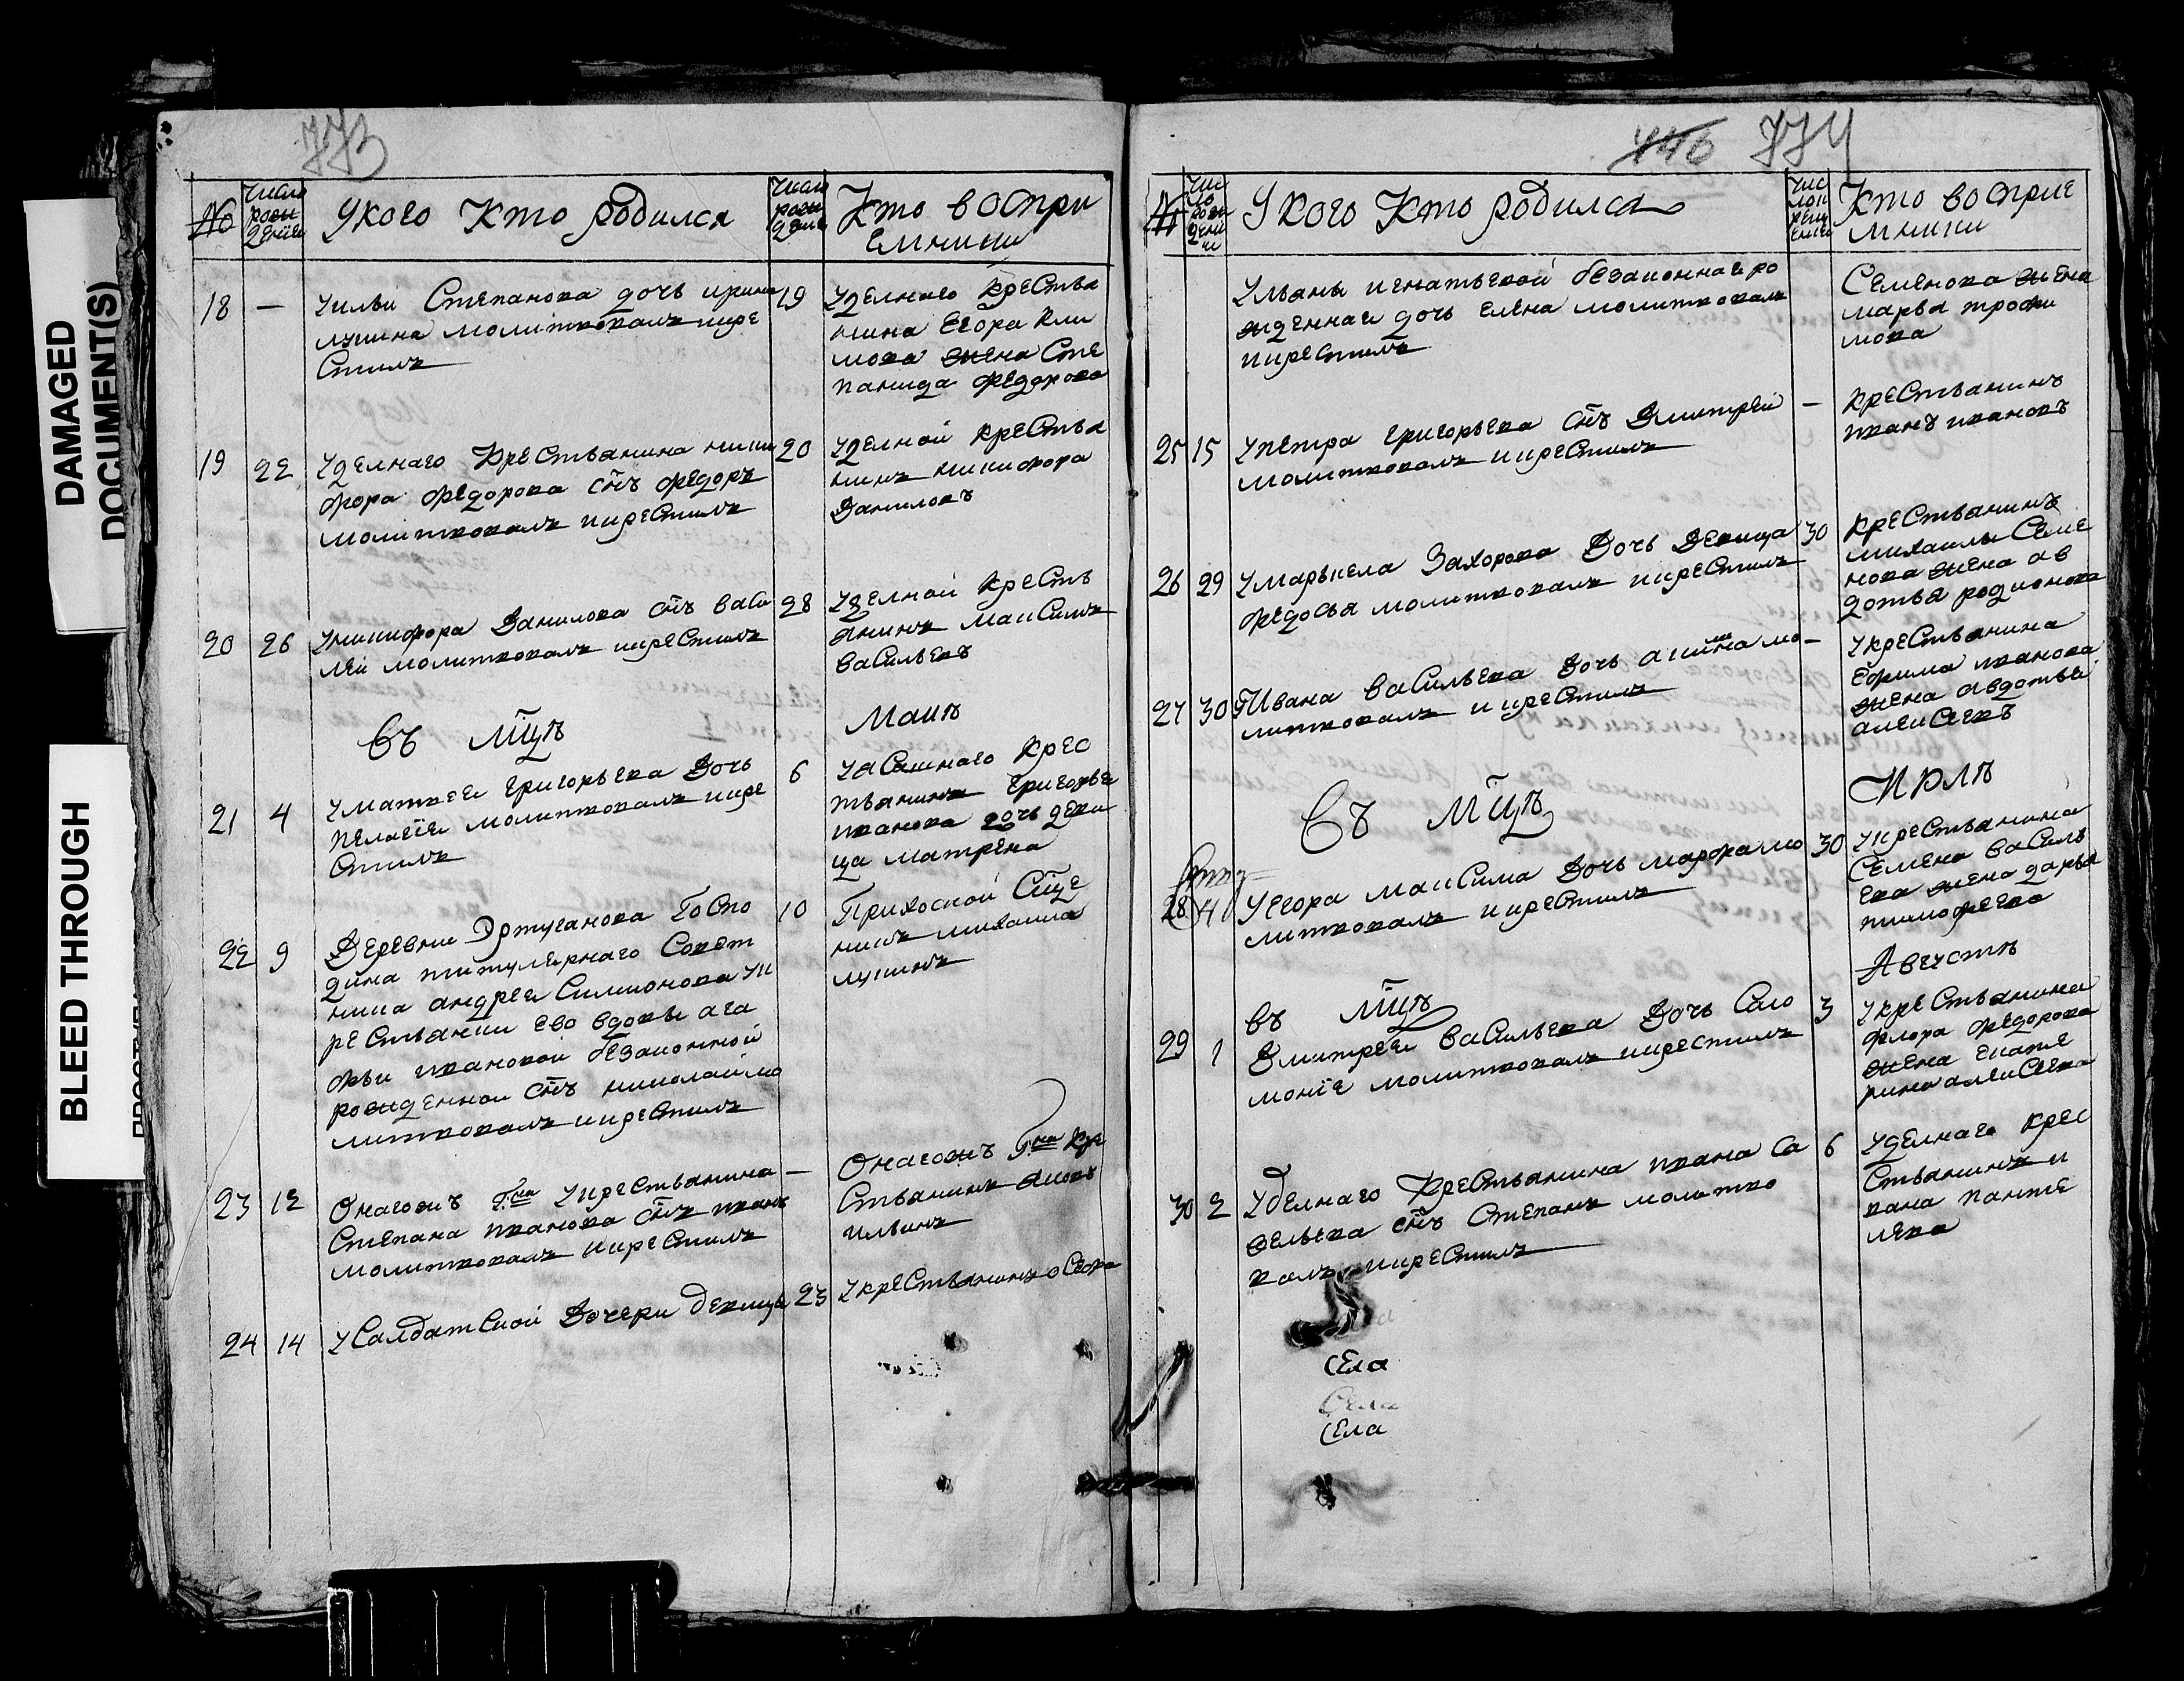 DAMAGED
DOCUMENT(S)
BLEED THROUGH
773
№
Число рожденiе
У кого Кто родился
Число рожденiе
Кто воспри
емники
18 —
Уильи Степанова дочь ирина
лукина молитвовалъ икре
стилъ
19
Уделнаго крестья
нина Егора Кли
мова жена Сте
панида Федорова
19 22
Уделнаго Крестьянина ники
фора Федорова снъ федоръ
молитвовалъ икрестилъ
20
Уделной крестья
нинъ никифора
Даниловъ
20 26
Уникифора Данилова снъ васи
лей молитвовалъ икрестилъ
28
Уделной кресть
янинъ максимъ
васильевъ
Въ мцѣ Маиѣ
21 4
Уматвея григорьева Дочь
пелагiе молитвовалъ икре
стилъ
6
крес
тьянинъ григорье
иванова дочь деви
ца матрена
22 9
Деревни Эртуганова Госпо
дина титулернаго Совет
ника андрея Симионова ук
рестьянки ево вдовы ага
фьи ивановой безаконной
рожденной снъ николай мо
литвовалъ икрестилъ
10
Приходской Сщe
никъ михаила
лукинъ
23 12
Онагожъ Гна укрестьянина
Степана иванова снъ иванъ
молитвовалъ икрестилъ
—
Онагожъ Гна Кре
стьянинъ яковъ
ильинъ
24 14
Усалдатской Дочери девицы
23
Укрестьянина
446 774
№
Число рождени
У кого Кто родился
Число крещение
Кто восприе
мники
Ульяны игнатьевой безаконнаго ро
жденнае дочь елена молитвовалъ
икрестилъ
Семенова жена
марья трофи
мова
25 15
Упетра григорьева снъ Дмитрей
молитвовалъ икрестилъ
—
крестьянинъ
иванъ ивановъ
26 29
Умаркела Захорова Дочь Девица
федосья молитвовалъ икрестилъ
30
крестьянинъ
михаилы Семе
нова жена ав
дотья родионова
27 30
УИвана васильева Дочь акилина мо
литвовалъ икрестилъ
—
Укрестьянина
Ефима иванова
жена авдотьи
алексеевъ
Въ Мцѣ Июлѣ
28
Уегора максима Дочь марфа мо
литвовалъ икрестилъ
30
Укрестьянина
Семена василь
ева жена дарья
тимофеева
въ мцѣ Августѣ
29 1
Дмитрея васильева Дочь Соло
монiе молитвовалъ икрестилъ
3
Укрестьянина
флора федорова
жена екате
рина алексеева
30 2
Уделнаго Крестьянина ивана са
вельева снъ Степанъ молитво
валъ икрестилъ
6
Уделнаго крес
стьянинъ и
вана панте
лева
Села
Села
Села